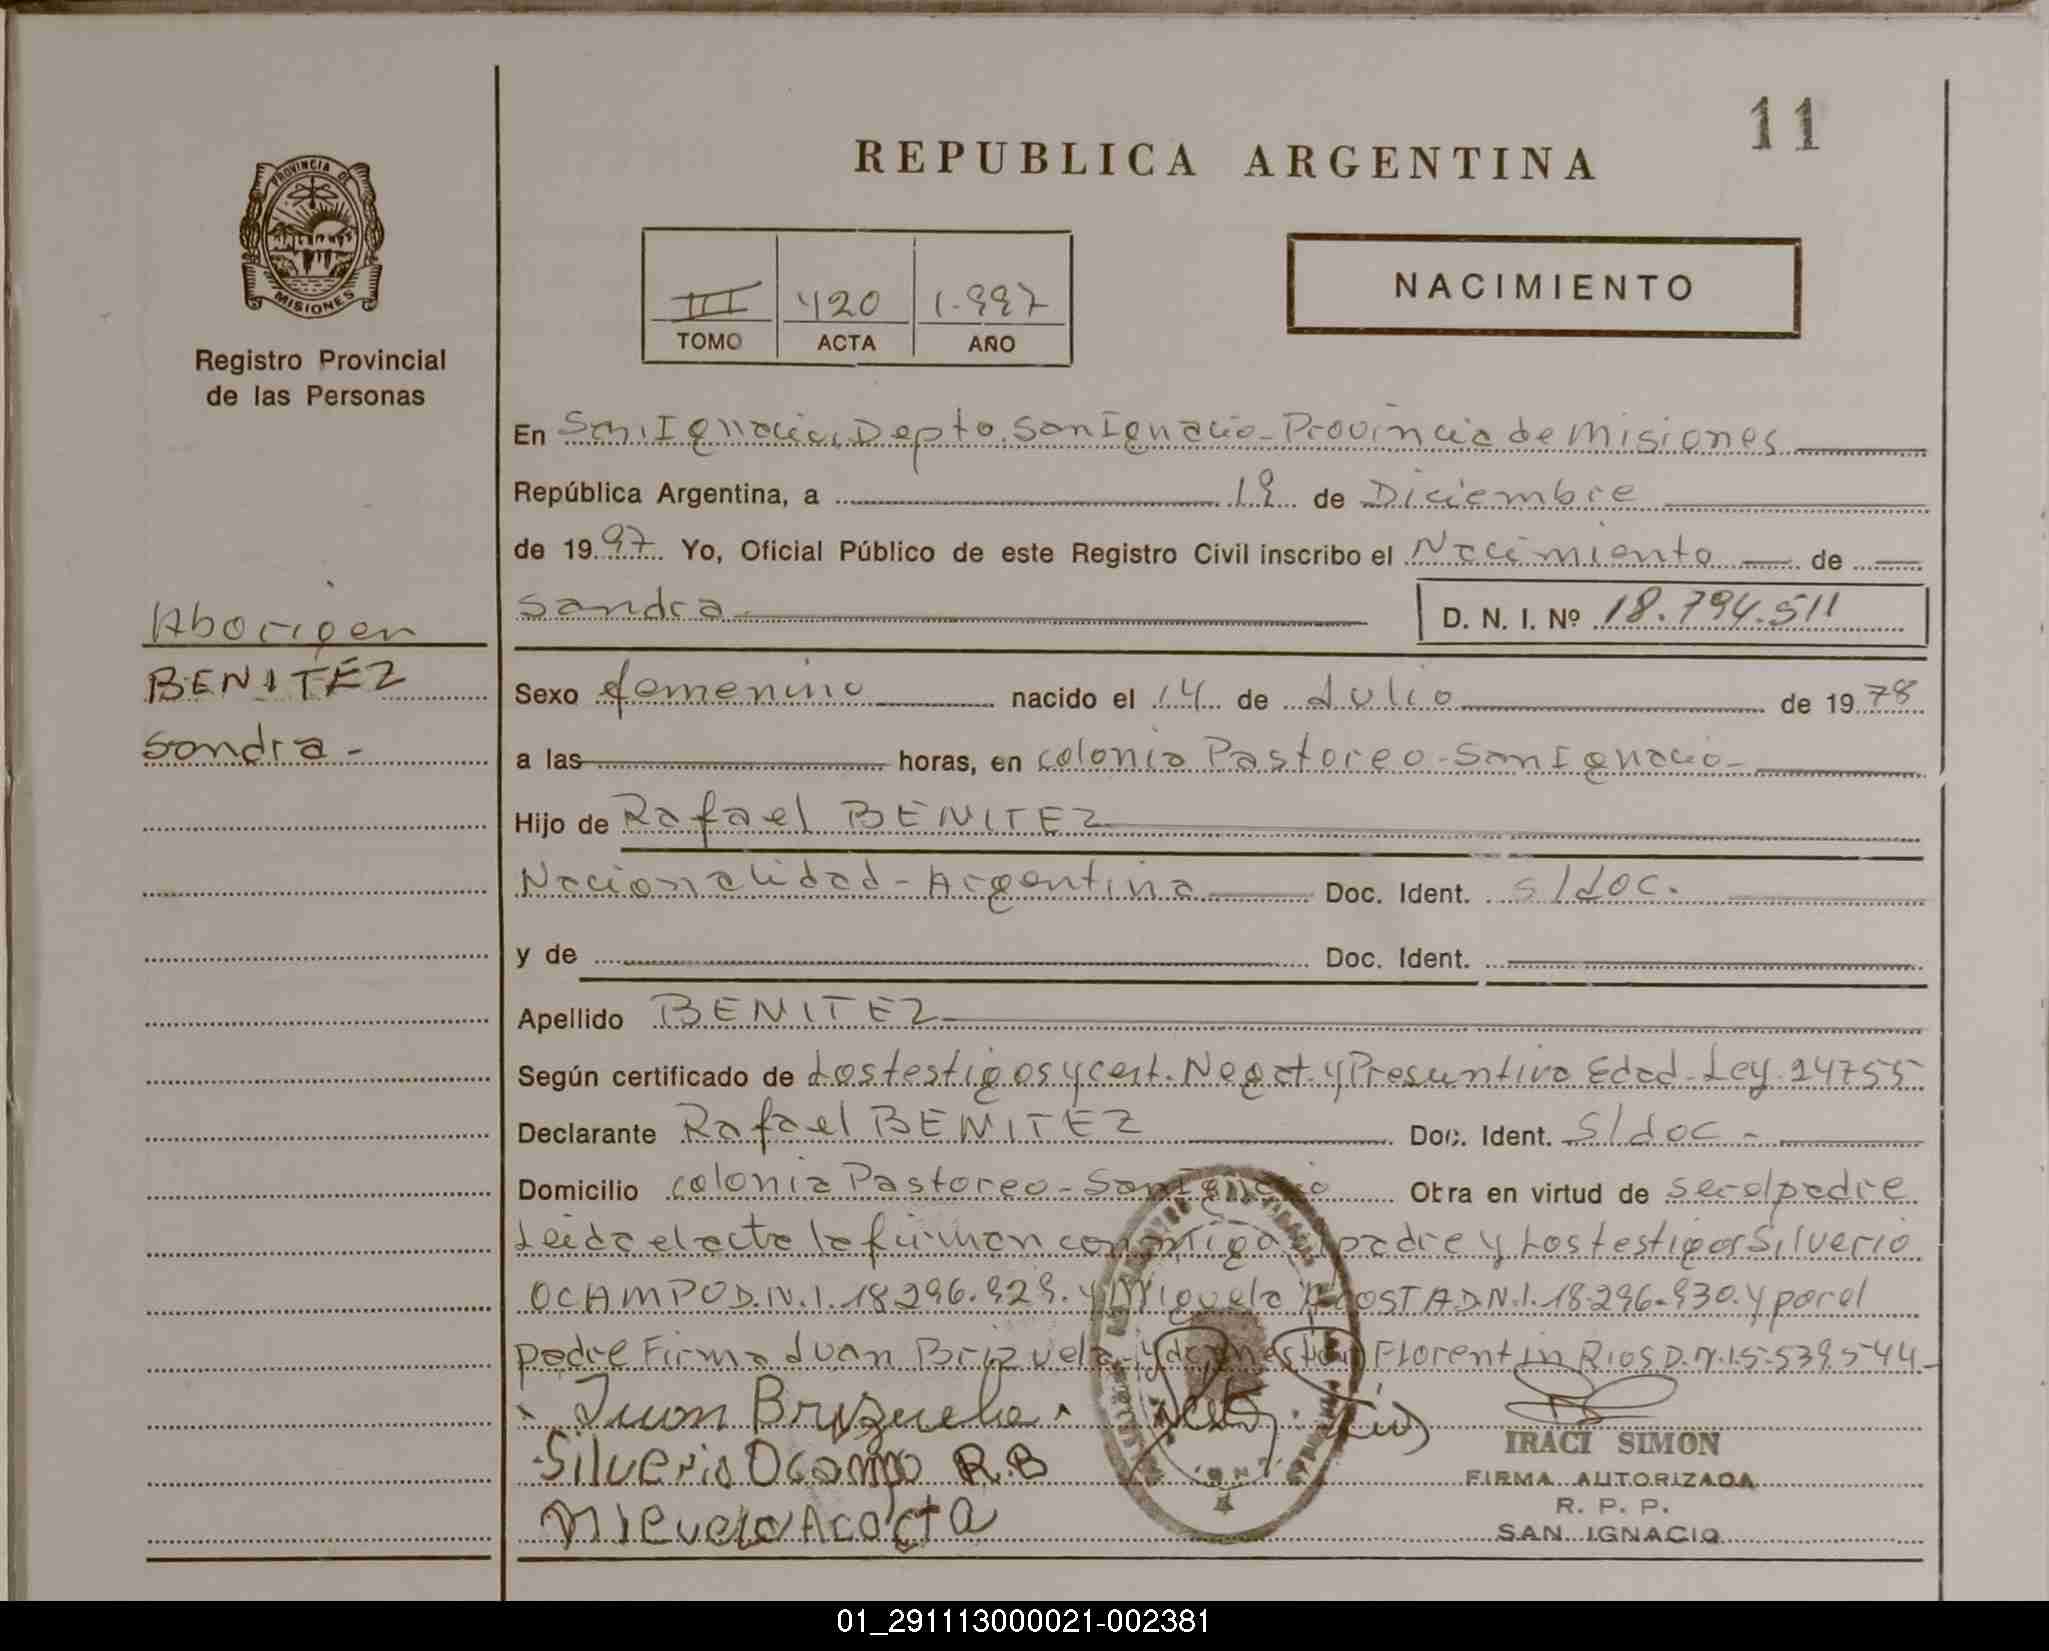 11
REPUBLICA ARGENTINA
PROVINCIA DE
MISIONES
Registro Provincial
de las Personas
III 420 1.997
TOMO ACTA AÑO
NACIMIENTO
En San Ignacio, Depto. San Ignacio - Provincia de Misiones
República Argentina, a 19 de Diciembre
de 1997 Yo, Oficial Público de este Registro Civil inscribo el Nacimiento de
Sandra D. N. I. Nº 18.794.511
Aborigen
BENITEZ
Sandra -
Sexo femenino nacido el 14 de Julio de 1978
a las horas, en colonia Pastoreo - San Ignacio -
Hijo de Rafael BENITEZ
Nacionalidad - Argentina Doc. Ident. s/doc.
y de Doc. Ident.
Apellido BENITEZ
Según certificado de Los testigos y cert. Negat. y Presuntivo Edad - Ley. 24755
Declarante Rafael BENITEZ Doc. Ident. s/doc -
Domicilio colonia Pastoreo - San Ignacio Obra en virtud de ser el padre
Leida el acta la firman conmigo el padre y Los testigos Silverio
OCAMPO D.N.I. 18.296.929. y Miguela ACOSTA D.N.I. 18.296.930. y por el
padre Firma Juan Brizuela Florentin Rios D.N.I. 5.539.544 -
Juan Brizuela
Silverio Ocampo R.B
Miguela Acosta
IRACI SIMON
FIRMA AUTORIZADA
R. P. P.
SAN IGNACIO
01_291113000021-002381